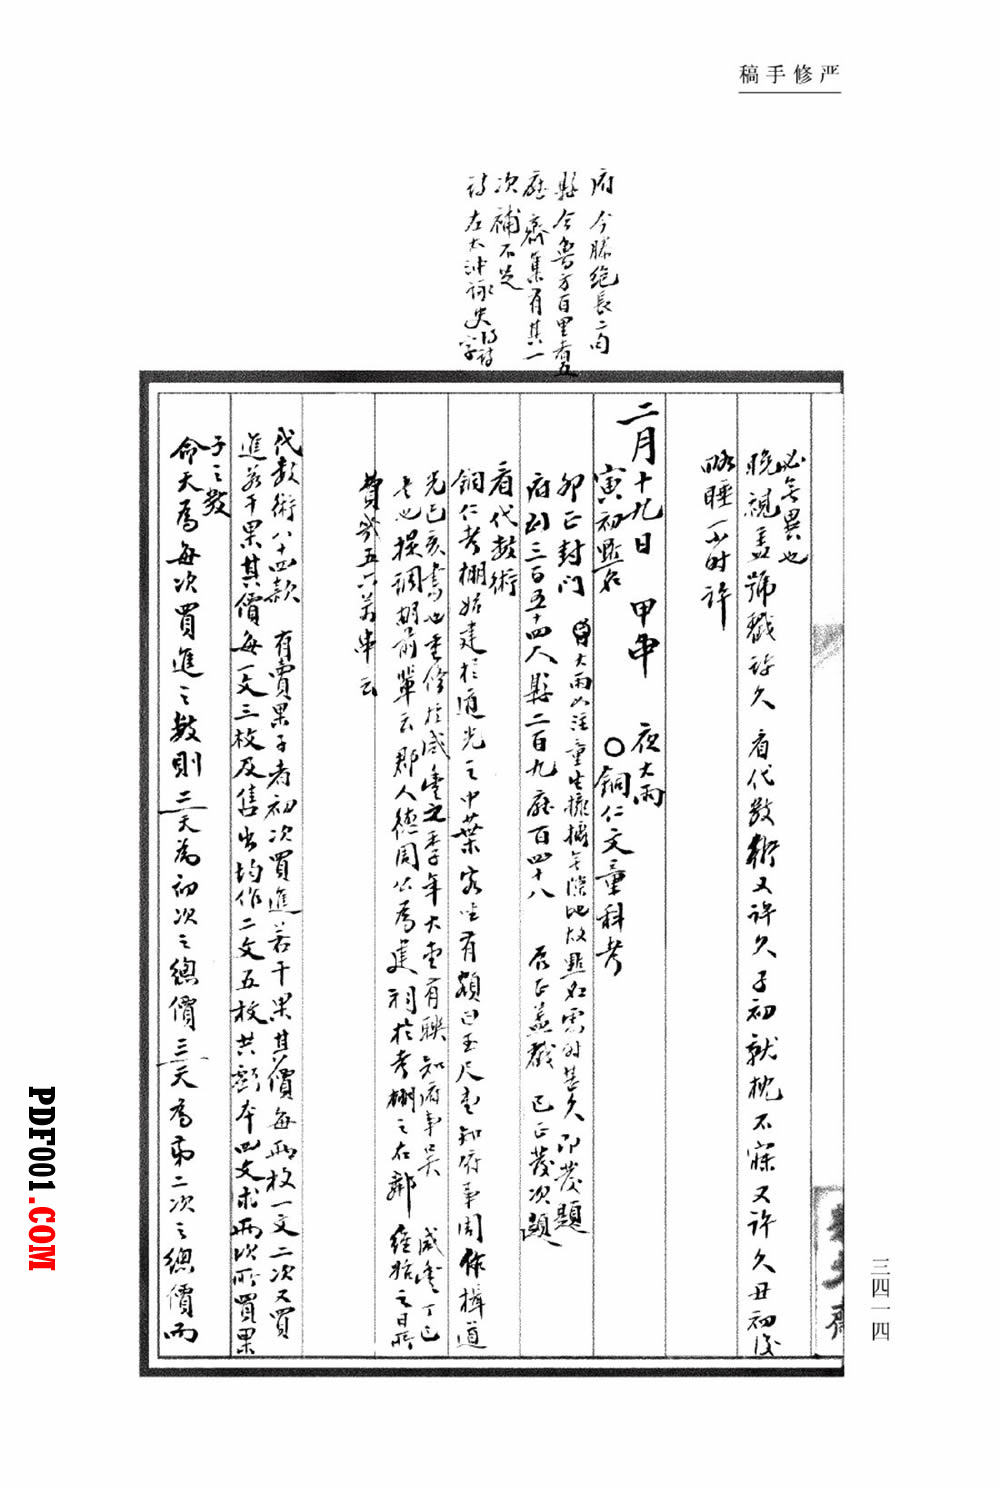 严修手稿
府 今勝絶長二句
縣 今魯方百里者五
廳 齊集有其一
次 補不足
詩 左太冲詠史 得詩字
必無異也
晚視蓋號戳許久 看代數術又許久子初就枕不寐又許久丑初後
略睡一小时許
二月十九日 甲申 夜大雨
寅初點名 ○銅仁文童科考
卯正封門 大雨如注童生擁擠無隙地故點名需时甚久 即發題
府到三百五十四人縣二百九廳百四十八 辰正蓋戳 巳正發次題
看代數術
銅仁考棚始建於道光之中葉客坐有額曰玉尺堂知府事周作楫道
光己亥書也重修於咸豐之季年大堂有聯知府事吴 咸豐丁巳
書也提調胡前輩云郡人德周公為建祠於考棚之右鄰 經始之日所
費卅五六萬串云
代數術八十四款 有賣果子者初次買進若干果其價每兩枚一文二次又買
進若干果其價每一文三枚及售出均作二文五枚共虧本四文求兩次所買果
子之數
命天為每次買進之數則二天為初次之總價三天為第二次之總價而
三四一四
PDF001.COM